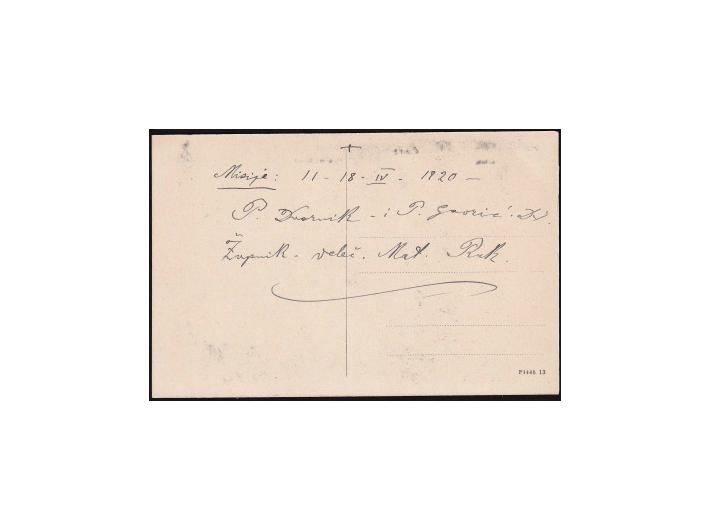 Misije: 11 - 18 - IV - 1920 -
P. Dvornik - i P. Gaorić. Dr.
Župnik - veleč. Mat. Rak.